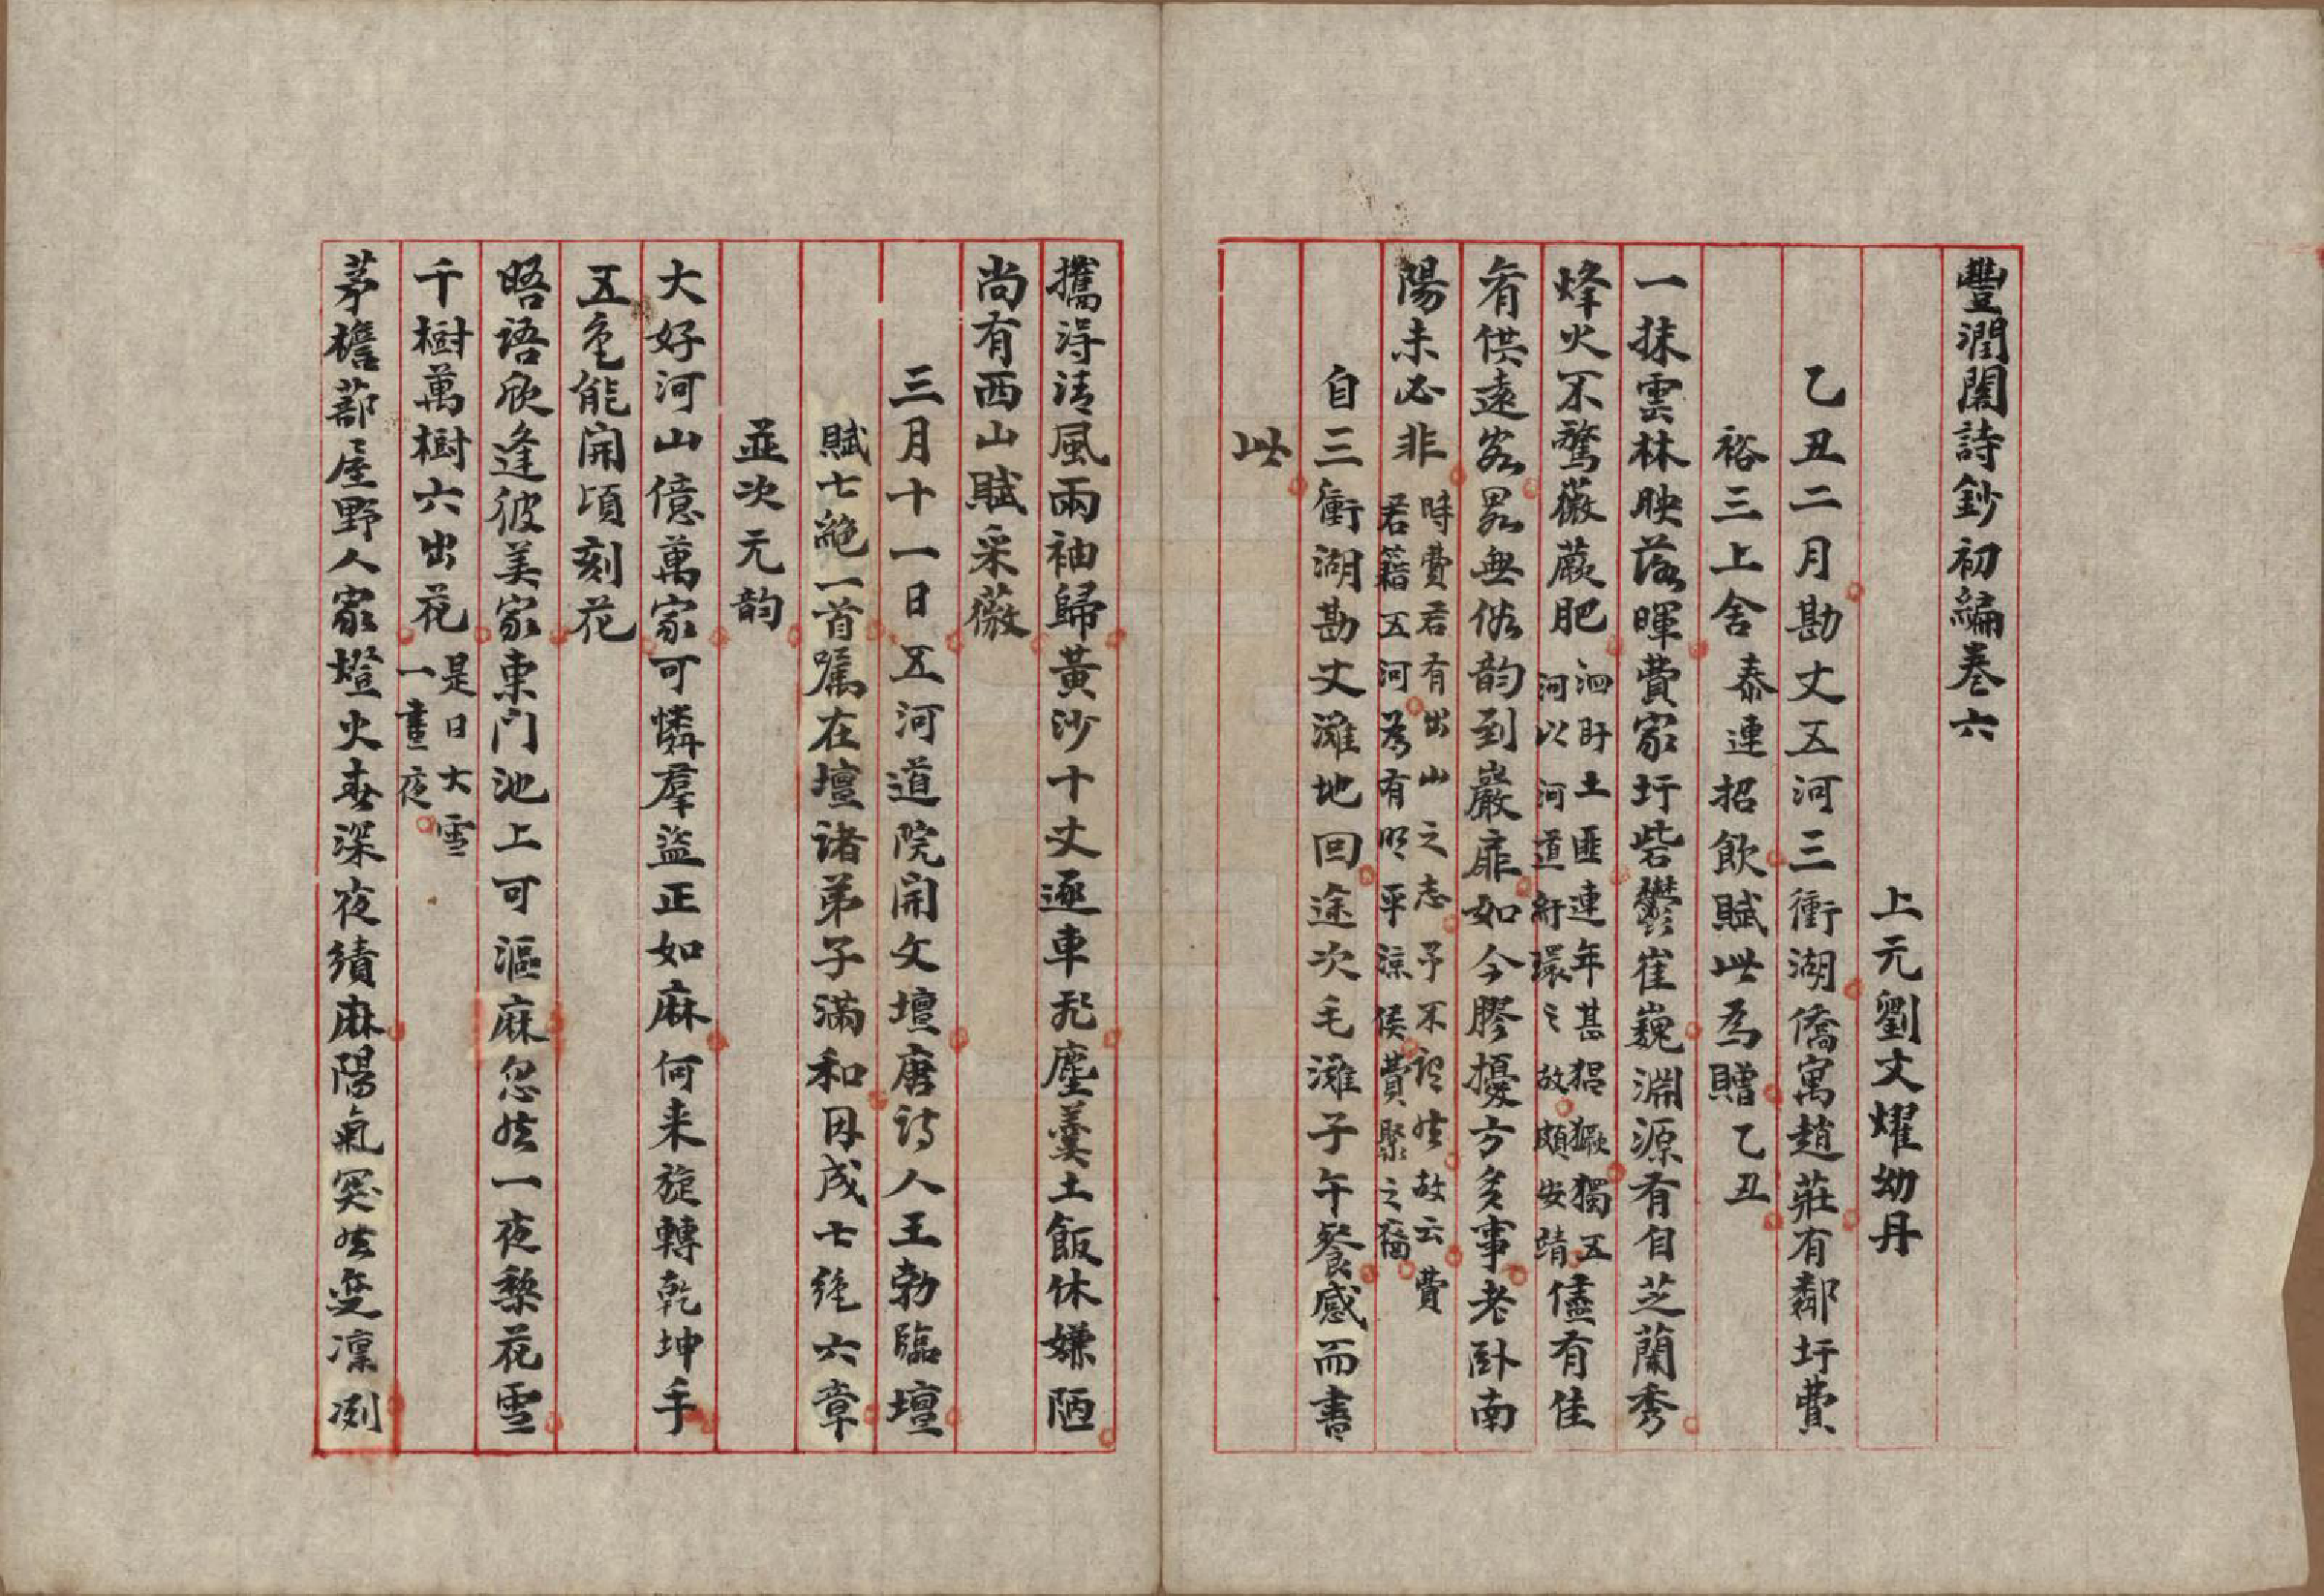 豐潤閣詩鈔初編卷六
上元劉文燿幼丹
乙丑二月勘丈五河三衝湖僑寓趙莊有鄰圩費
裕三上舍泰連招飲賦此為贈乙丑
一抹雲林映落暉費家圩砦鬱崔巍淵源有自芝蘭秀
烽火不驚薇蕨肥
泗盱土匪連年甚猖獗獨五
河以河道紆環之故頗安靖
儘有佳
肴供遠客曷無俗韵到巖扉如今膠擾方多事老卧南
陽未必非
時費君有出山之志予不謂然故云費
君籍五河為有明平涼侯費聚之裔
自三衝湖勘丈灘地回途次毛灘子午餐感而書
此
攜得清風兩袖歸黃沙十丈逐車飛塵羹土飯休嫌陋
尚有西山賦采薇
三月十一日五河道院開文壇唐詩人王勃臨壇
賦七絕一首囑在壇諸弟子滿和因成七絕六章
並次元韵
大好河山億萬家可憐羣盜正如麻何来旋轉乾坤手
五色能開頃刻花
晤語欣逢彼美家東门池上可漚麻忽然一夜梨花雪
千樹萬樹六出花
是日大雪
一晝夜
茅檐蔀屋野人家燈火春深夜績麻陽氣突然變凜冽